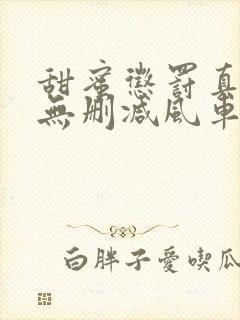 甜蜜懲罰真
無刪減風車
白胖子愛喫瓜